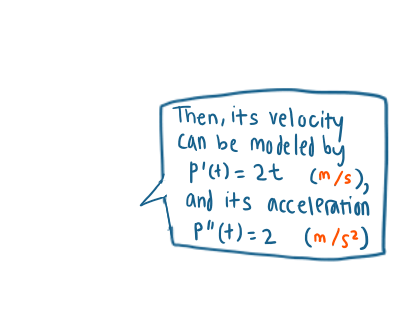 Then, its velocity
can be modeled by
p'(t) = 2t (m/s),
and its acceleration
p"(t) = 2 (m/s²)